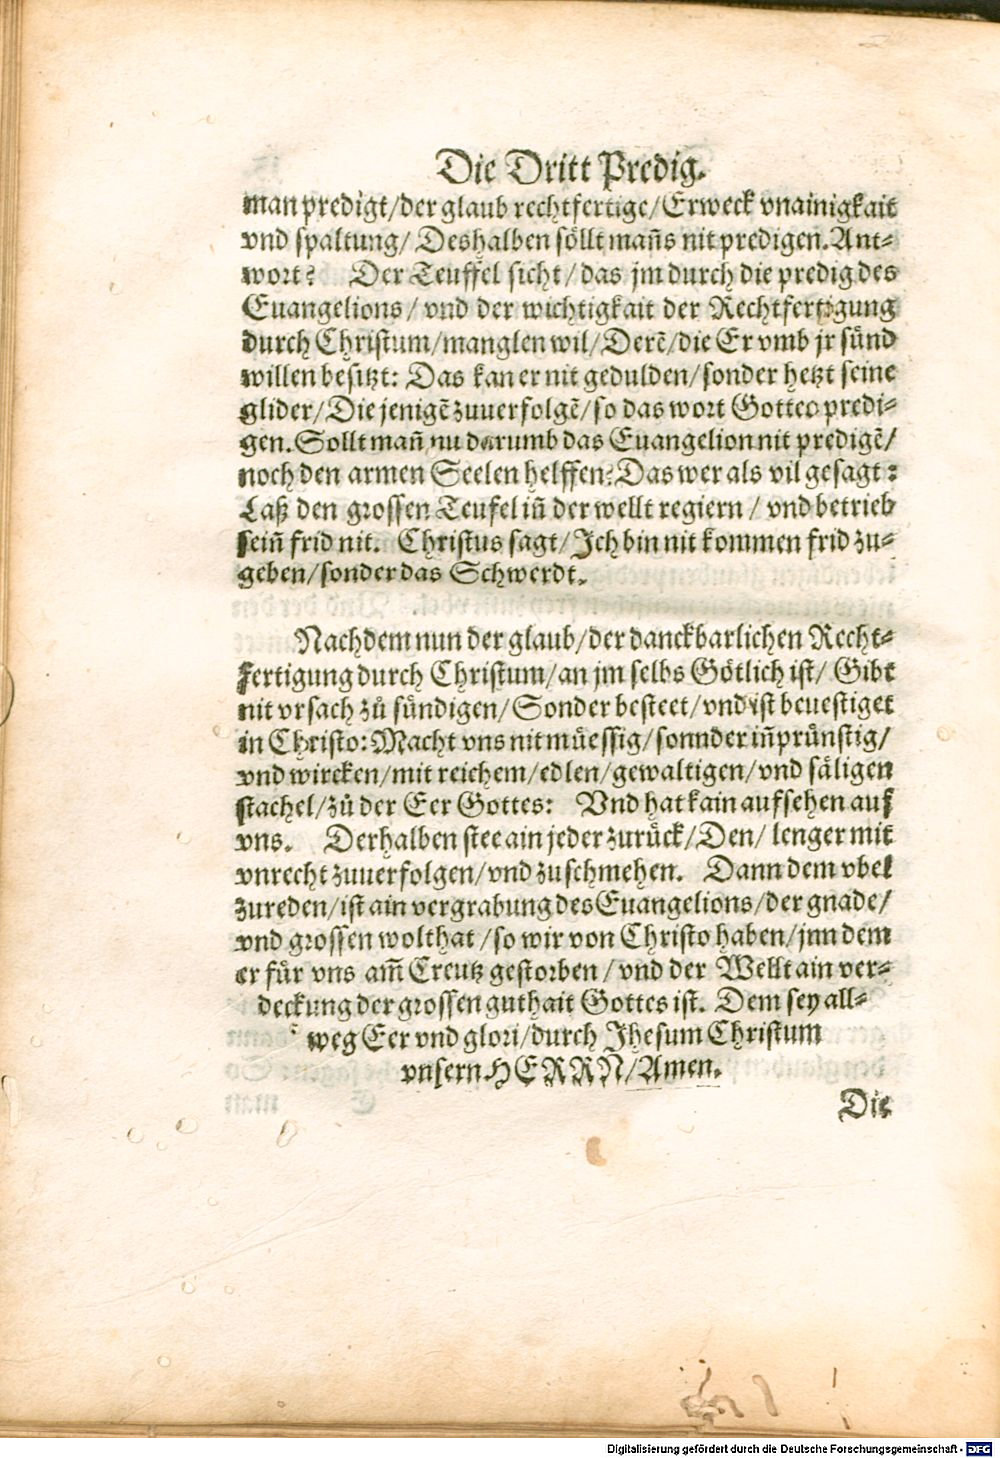 Die Dritt Predig.
man predigt/der glaub rechtfertige/Erweck vnainigkait
vnd spaltung/ Deshalben söllt mañs nit predigen. Ant-
wort? Der Teuffel sicht/ das jm durch die predig des
Euangelions/ vnd der wichtigkait der Rechtfertigung
durch Christum/manglen wil/Derẽ/die Er vmb jr sünd
willen besitzt: Das kan er nit gedulden/sonder hetzt seine
glider/Die jenigẽ zuuerfolgẽ/so das wort Gottes predi-
gen. Sollt mañ nu darumb das Euangelion nit predigẽ/
noch den armen Seelen helffen? Das wer als vil gesagt:
Laß den grossen Teufel iñ der wellt regiern/ vnd betrieb
seiñ frid nit. Christus sagt/Ich bin nit kommen frid zu-
geben/sonder das Schwerdt.
Nachdem nun der glaub/der danckbarlichen Recht-
fertigung durch Christum/an jm selbs Götlich ist/ Gibt
nit vrsach zů sündigen/Sonder besteet/vnd ist beuestiget
in Christo: Macht vns nit müessig/sonnder iñprünstig/
vnd wircken/mit reichem/edlen/gewaltigen/vnd säligen
stachel/zů der Eer Gottes: Vnd hat kain aufsehen auf
vns. Derhalben stee ain jeder zurück/Den/ lenger mit
vnrecht zuuerfolgen/vnd zuschmehen. Dann dem vbel
zureden/ist ain vergrabung des Euangelions/der gnade/
vnd grossen wolthat/so wir von Christo haben/jnn dem
er für vns am̃ Creutz gestorben/vnd der Wellt ain ver-
deckung der grossen guthait Gottes ist. Dem sey all-
weg Eer vnd glori/durch Jhesum Christum
vnsern HERRN/Amen.
Die
Digitalisierung gefördert durch die Deutsche Forschungsgemeinschaft - DFG